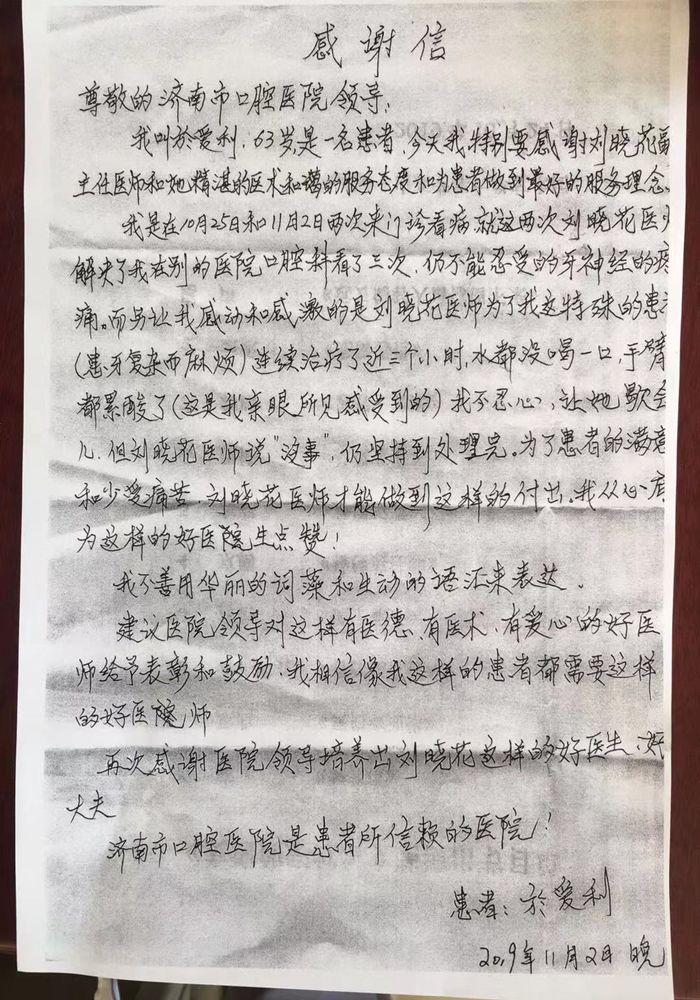 感谢信
尊敬的济南市口腔医院领导:
我叫於爱利,63岁,是一名患者,今天我特别要感谢刘晓花副
主任医师和她精湛的医术和蔼的服务态度和为患者做到最好的服务理念。
我是在10月25日和11月2日两次来门诊看病就这两次刘晓花医
解决了我在别的医院口腔科看了三次,仍不能忍受的牙神经的疼
痛。而另让我感动和感激的是刘晓花医师为了我这特殊的患
(患牙复杂而麻烦)连续治疗了近三个小时,水都没喝一口,手臂
都累酸了(这是我亲眼所见感受到的)我不忍心,让她歇会
儿.但刘晓花医师说"没事",仍坚持到处理完。为了患者的满意
和少受痛苦,刘晓花医师才能做到这样的付出,我从心底
为这样的好医院生点赞!
我不善用华丽的词藻和生动的语汇来表达.
建议医院领导对这样有医德、有医术、有爱心的好医
师给予表彰和鼓励,我相信像我这样的患者都需要这样
的好医院师
再次感谢医院领导培养出刘晓花这样的好医生,好
大夫
济南市口腔医院是患者所信赖的医院!
患者:於爱利
2019年11月2日晚